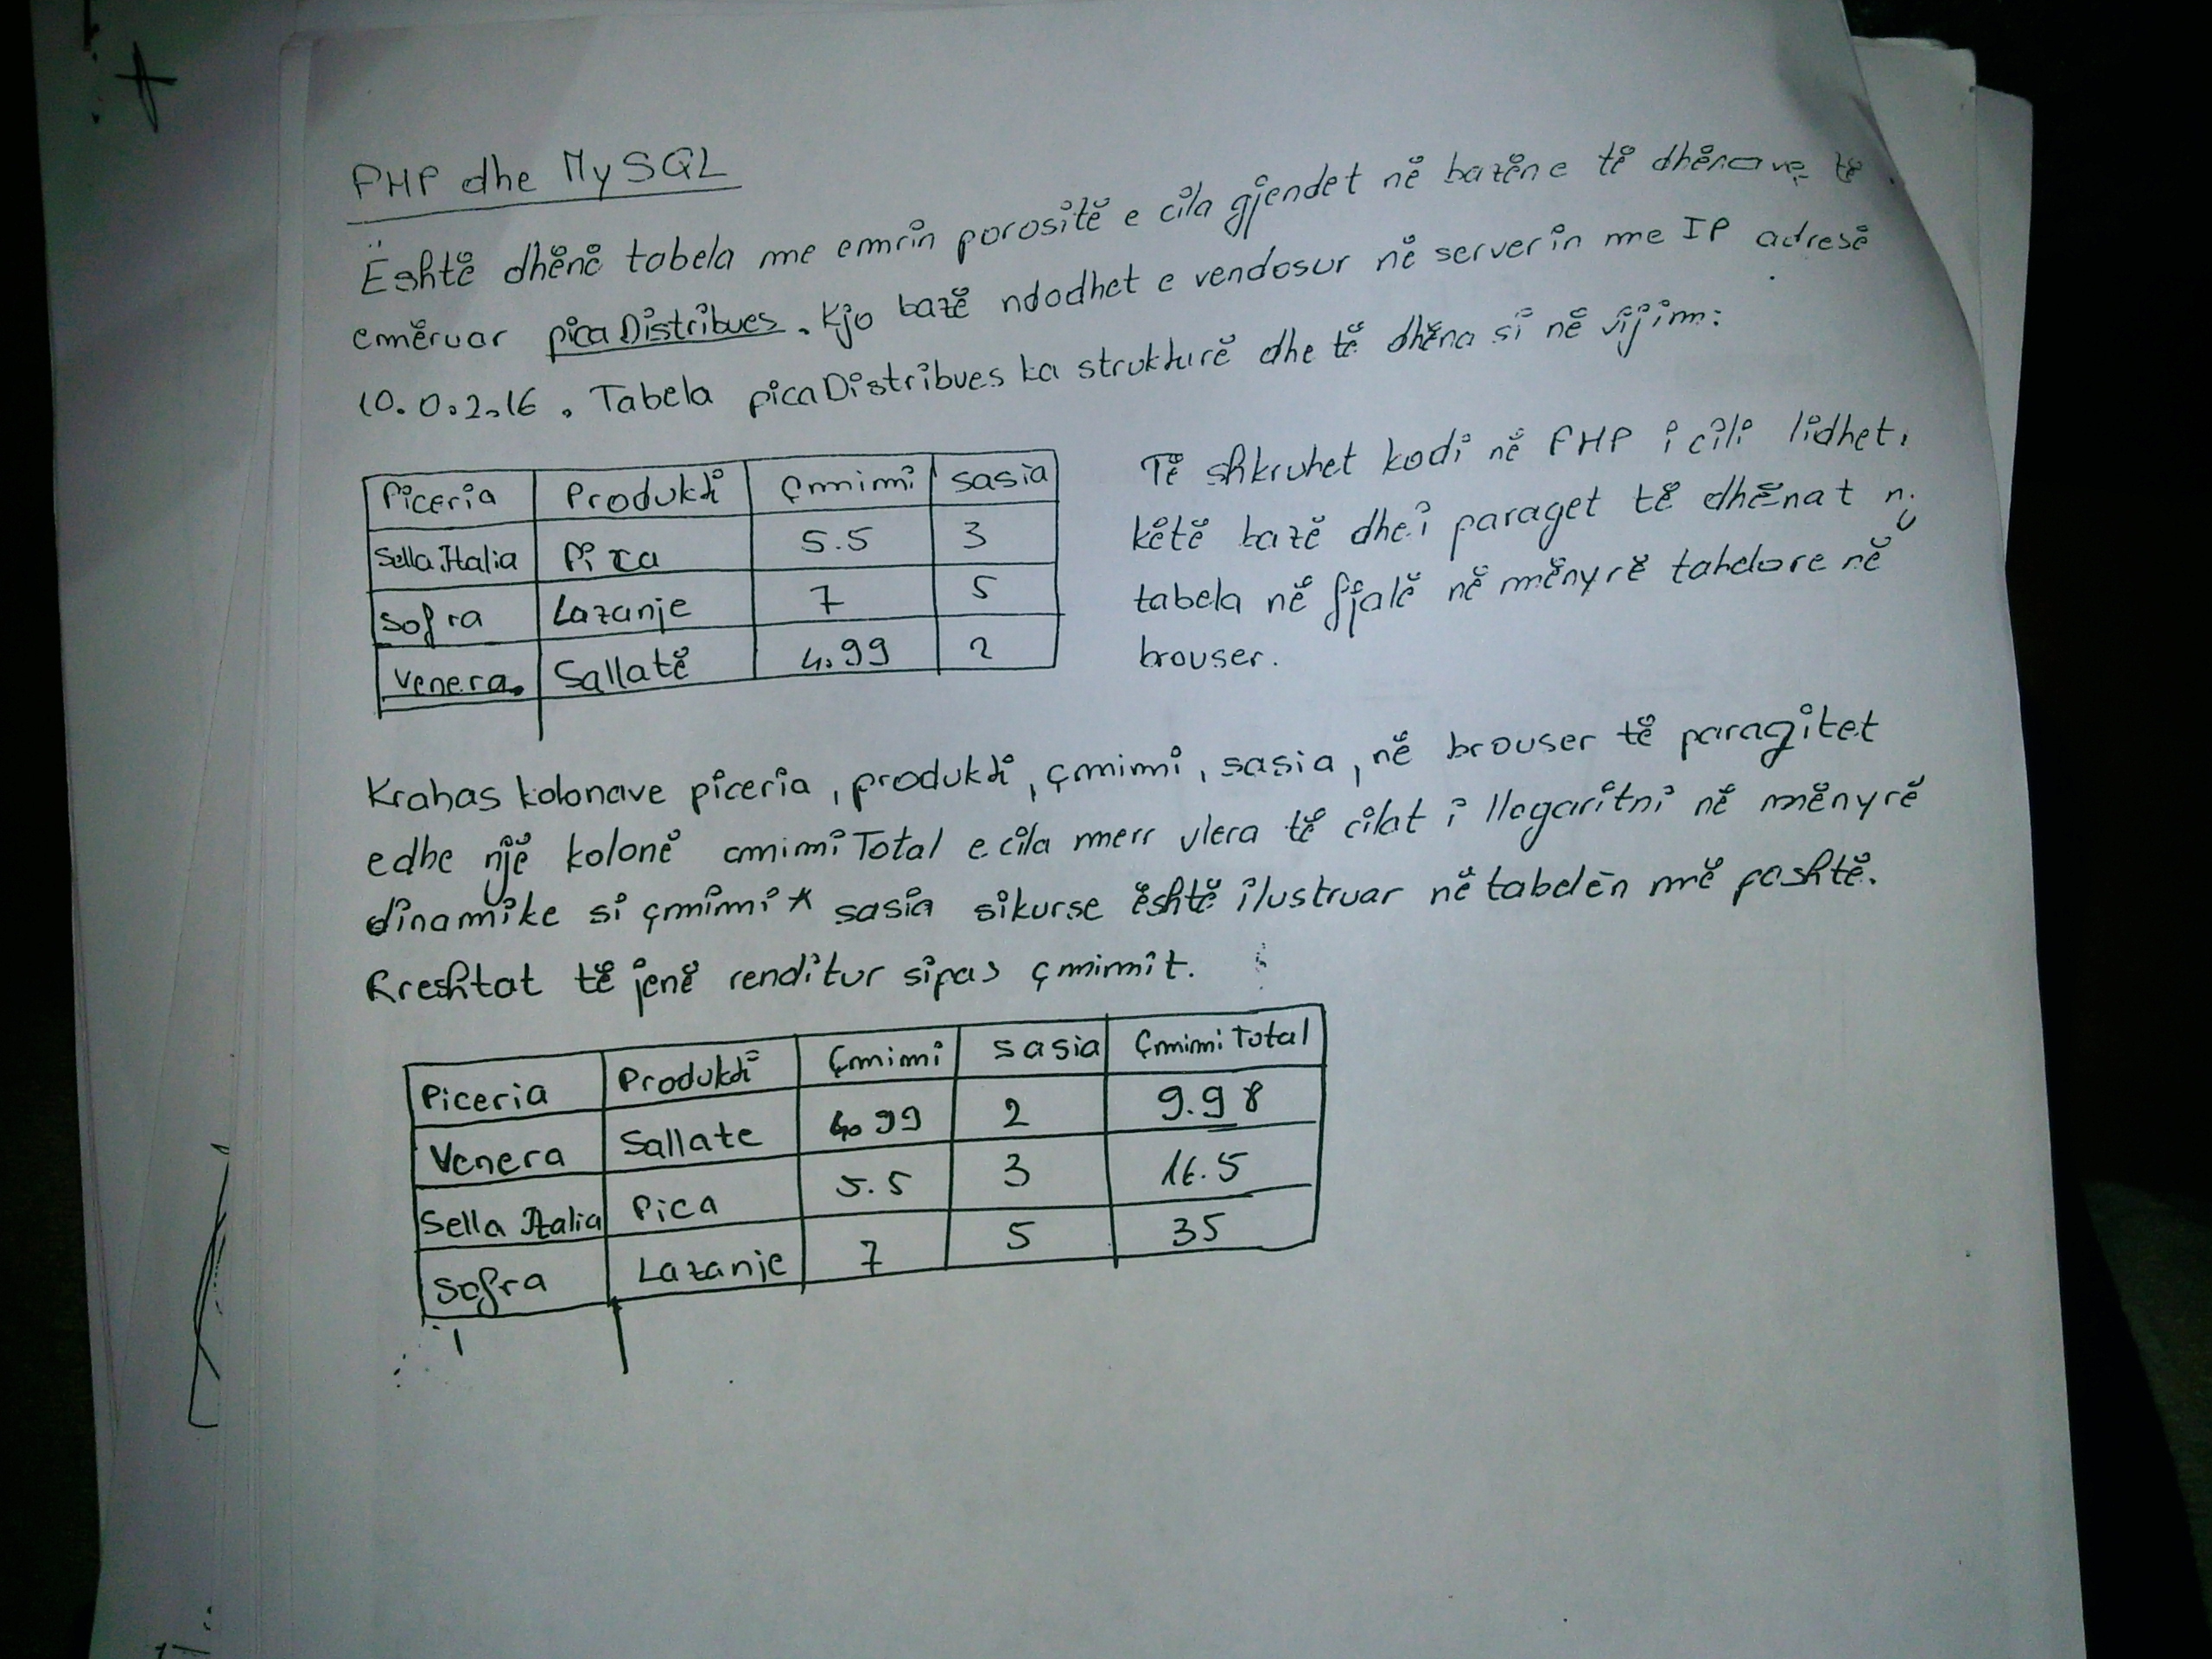 PHP dhe MySQL
Është dhënë tabela me emrin porositë e cila gjendet në bazën e të dhënave të
emëruar picaDistribues. Kjo bazë ndodhet e vendosur në serverin me IP adresë
10.0.2.16. Tabela picaDistribues ka strukturë dhe të dhëna si në vijim:
Piceria Produkti Çmimi sasia
Sella Italia Pica 5.5 3
Sofra Lazanje 7 5
Venera. Sallatë 4.99 2
Të shkruhet kodi në PHP i cili lidhet
këtë bazë dhe i paraget të dhënat nj
tabela në fjalë në mënyrë tabelore në
brouser.
Krahas kolonave piceria, produkti, çmimi, sasia, në brouser të paragitet
edhe një kolonë cmimiTotal e cila merr vlera të cilat i llogaritni në mënyrë
dinamike si çmimi * sasia sikurse është ilustruar në tabelën më poshtë.
Rreshtat të jenë renditur sipas çmimit.
Piceria Produkti Çmimi sasia ÇmimiTotal
Venera Sallate 4.99 2 9.98
Sella Italia Pica 5.5 3 16.5
Sofra Lazanje 7 5 35